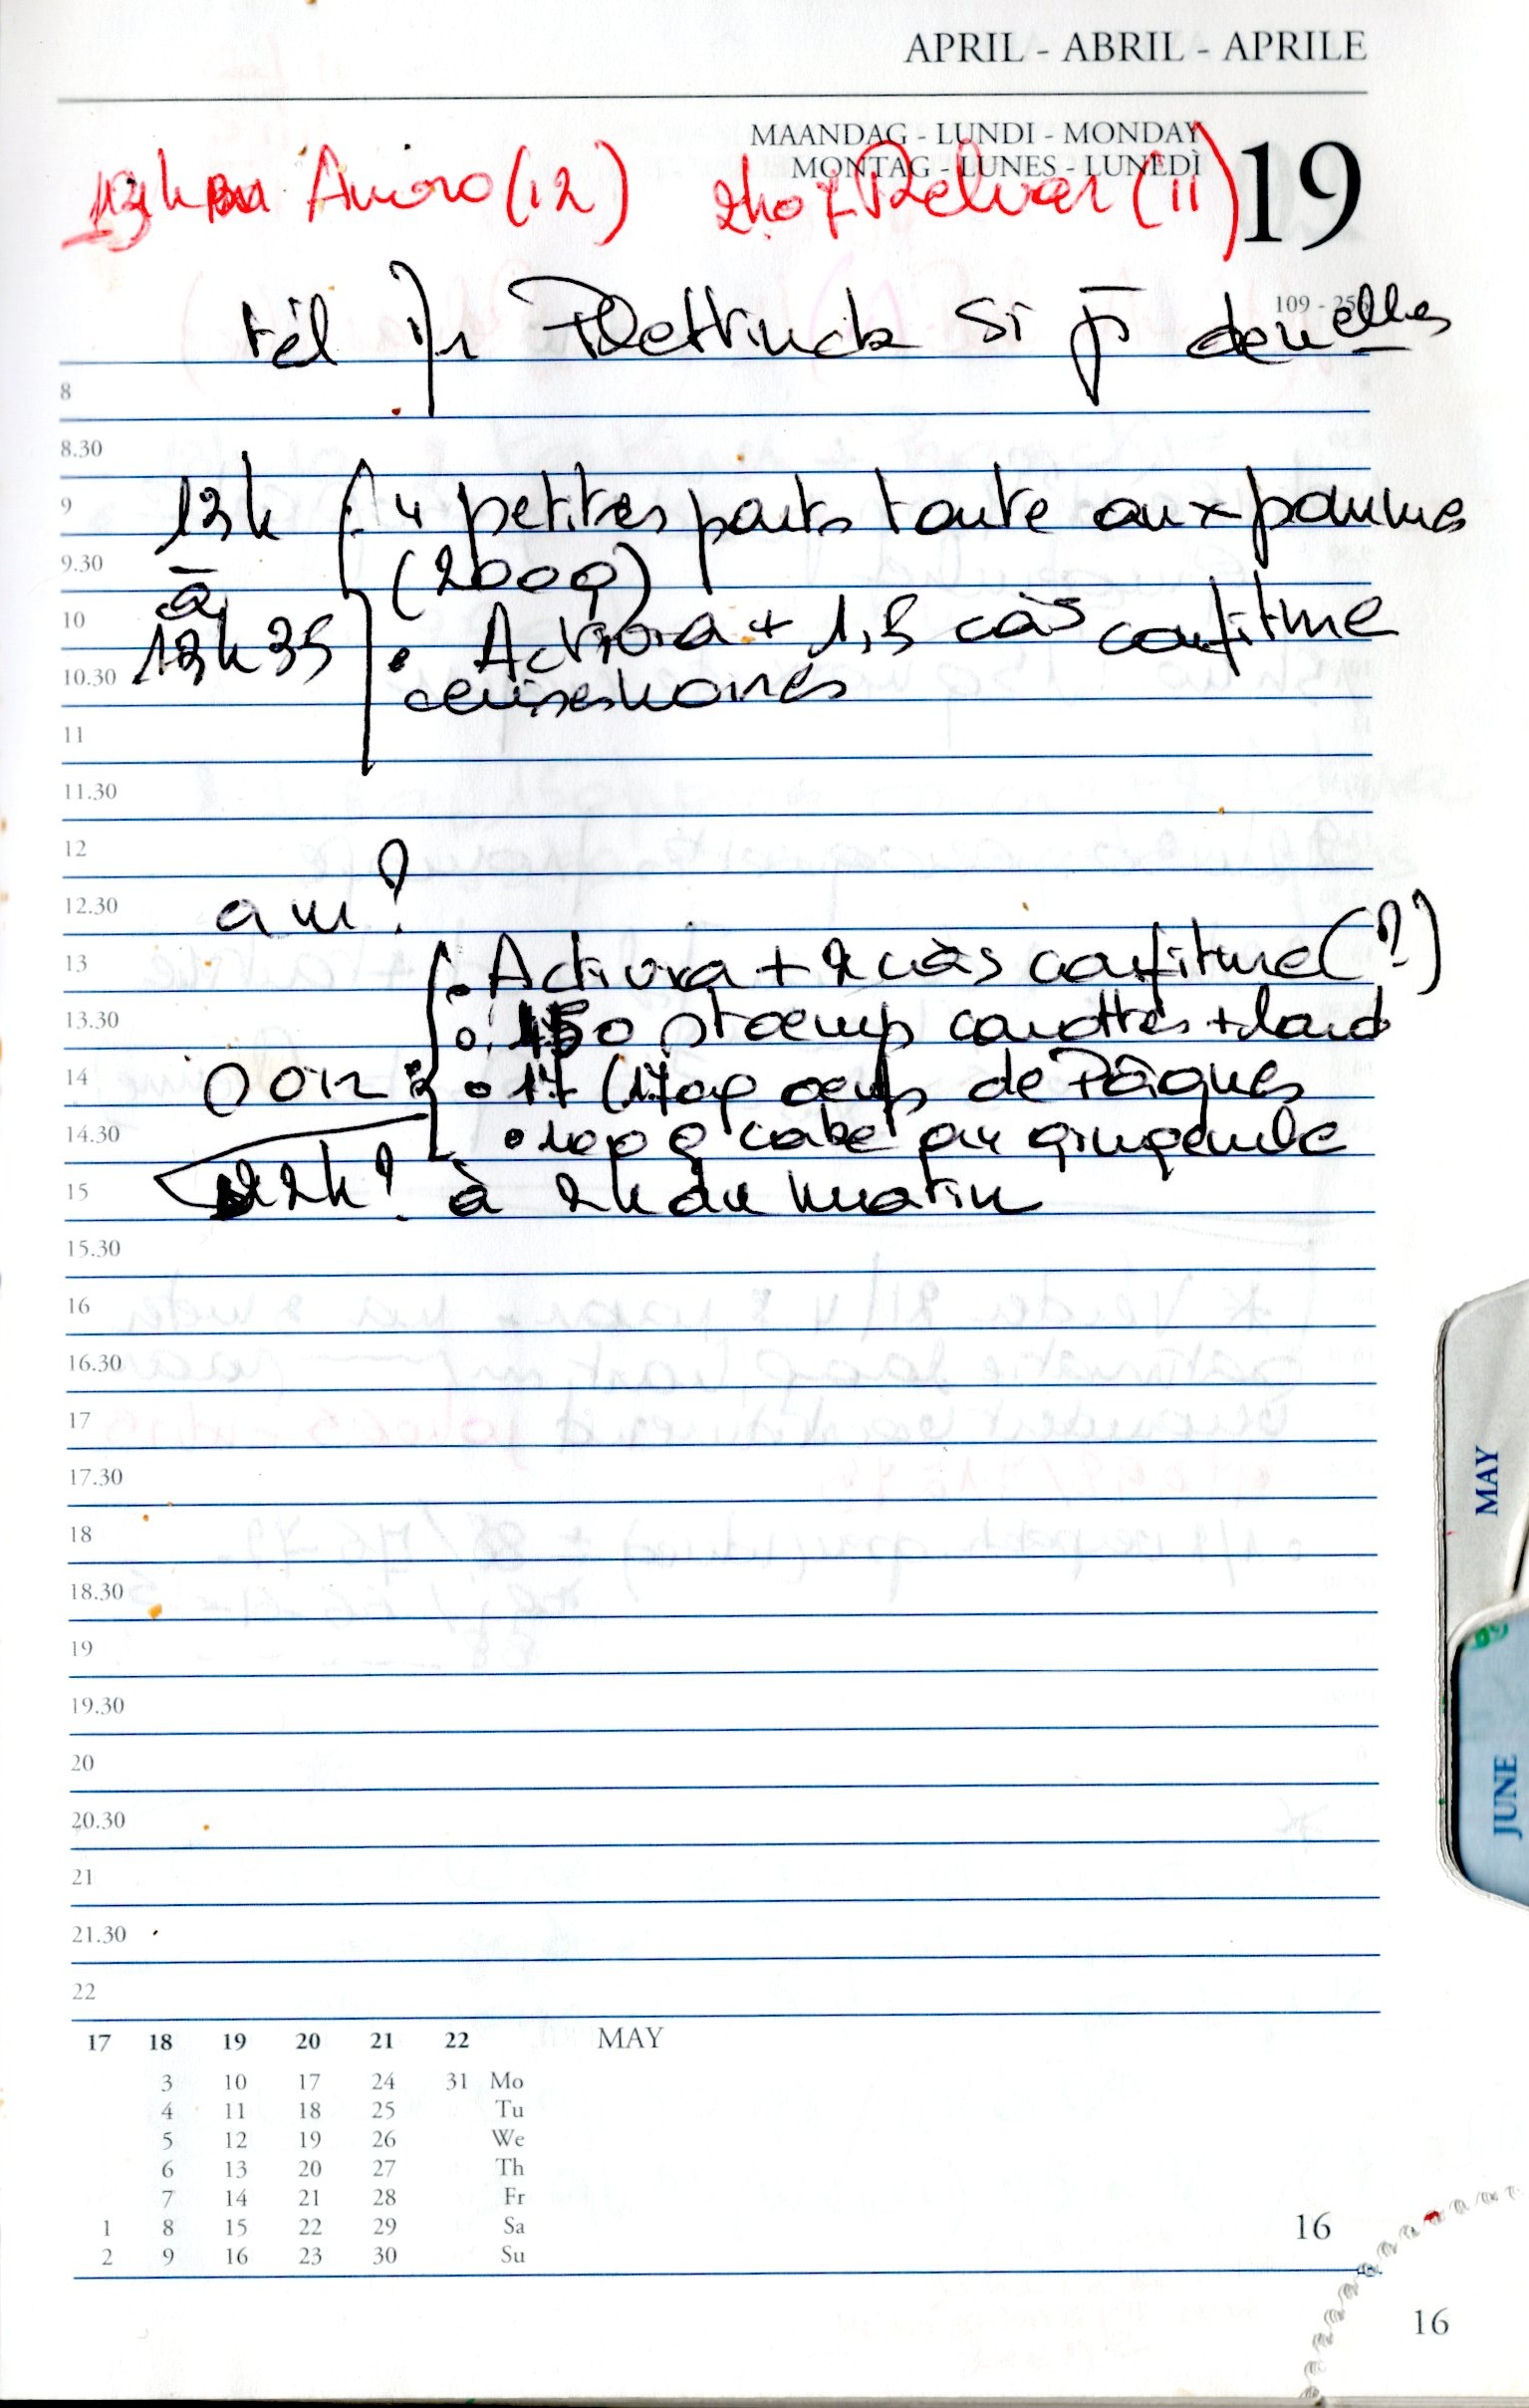 APRIL - ABRIL - APRILE
MAANDAG - LUNDI - MONDAY
MONTAG - LUNES - LUNEDÌ
19
(12) 2h07 (11)
109 - 256
tél si
8
8.30
13h 4 petites parts tarte aux pommes
9
9.30
(200g)
à
10
13h35 Activia + 1,5 càs confiture
10.30
cerises noires
11
11.30
12
am?
12.30
13
Activia + 2 càs confiture (?)
13.30
150 stoemp carottes + lard
14
17 (170g oeufs de Pâques
14.30
100g cake au gingembre
15
22h? à 2h du matin
15.30
16
16.30
17
17.30
18
18.30
19
19.30
20
20.30
21
21.30
22
17 18 19 20 21 22 MAY
3 10 17 24 31 Mo
4 11 18 25 Tu
5 12 19 26 We
6 13 20 27 Th
7 14 21 28 Fr
1 8 15 22 29 Sa
2 9 16 23 30 Su
16
16
MAY
JUNE